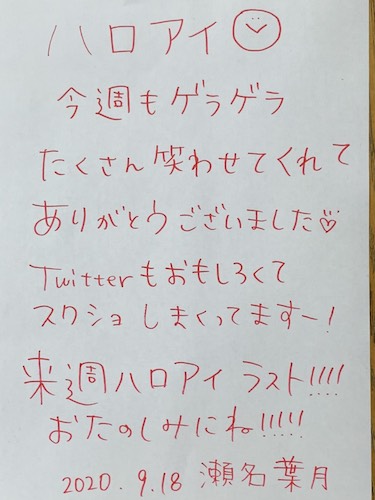 ハロアイ
今週もゲラゲラ
たくさん笑わせてくれて
ありがとうございました♡
Twitterもおもしろくて
スクショしまくってますー!
来週ハロアイ ラスト!!!!
おたのしみにね!!!!!
2020.9.18 瀬名葉月